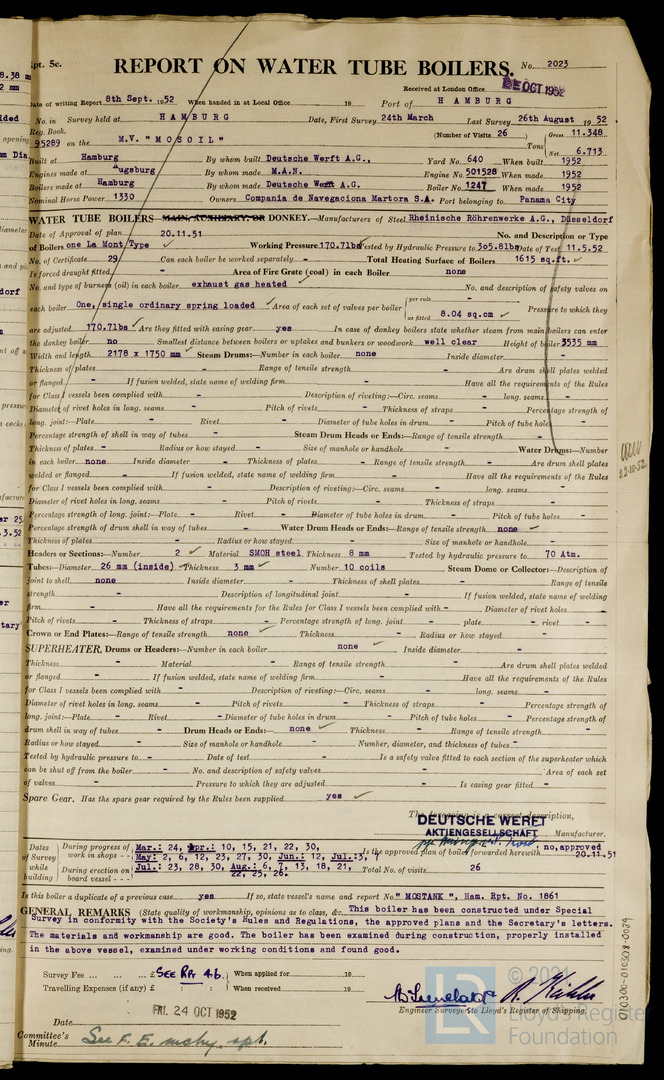 Rpt. 5c.
REPORT ON WATER TUBE BOILERS.
No. 2023
Received at London Office
OCT 1952
Date of writing Report 8th Sept. 1952 When handed in at Local Office 19 Port of HAMBURG
No. in Survey held at HAMBURG Date, First Survey 24th March Last Survey 26th August 1952
Reg. Book. (Number of Visits 26) Gross 11.348
95289 on the M.V. "MOSOIL" Tons Net 6.713
Built at Hamburg By whom built Deutsche Werft A.G., Yard No. 640 When built 1952
Engines made at Augsburg By whom made M.A.N. Engine No. 501528 When made 1952
Boilers made at Hamburg By whom made Deutsche Werft A.G. Boiler No. 1247 When made 1952
Nominal Horse Power 1330 Owners Compania de Navegaciona Martora S.A. Port belonging to Panama City
WATER TUBE BOILERS MAIN, AUXILIARY, OR DONKEY.—Manufacturers of Steel Rheinische Röhrenwerke A.G., Düsseldorf
Date of Approval of plan 20.11.51 No. and Description or Type
of Boilers one La Mont Type Working Pressure 170.7lbs Tested by Hydraulic Pressure to 305.8lbs Date of Test 11.5.52
No. of Certificate 29 Can each boiler be worked separately - Total Heating Surface of Boilers 1615 sq.ft.
Is forced draught fitted - Area of Fire Grate (coal) in each Boiler none
No. and type of burners (oil) in each boiler exhaust gas heated No. and description of safety valves on
each boiler One, single ordinary spring loaded Area of each set of valves per boiler per rule - as fitted 8.04 sq.cm Pressure to which they
are adjusted 170.7lbs Are they fitted with easing gear yes In case of donkey boilers state whether steam from main boilers can enter
the donkey boiler no Smallest distance between boilers or uptakes and bunkers or woodwork well clear Height of boiler 3535 mm
Width and length 2178 x 1750 mm Steam Drums:—Number in each boiler none Inside diameter -
Thickness of plates - Range of tensile strength - Are drum shell plates welded
or flanged - If fusion welded, state name of welding firm - Have all the requirements of the Rules
for Class I vessels been complied with - Description of riveting:—Circ. seams - long. seams -
Diameter of rivet holes in long. seams - Pitch of rivets - Thickness of straps - Percentage strength of
long. joint:—Plate - Rivet - Diameter of tube holes in drum - Pitch of tube holes -
Percentage strength of shell in way of tubes - Steam Drum Heads or Ends:—Range of tensile strength -
Thickness of plates - Radius or how stayed - Size of manhole or handhole - Water Drums:—Number
in each boiler none Inside diameter - Thickness of plates - Range of tensile strength - Are drum shell plates
welded or flanged - If fusion welded, state name of welding firm - Have all the requirements of the Rules
for Class I vessels been complied with - Description of riveting:—Circ. seams - long. seams -
Diameter of rivet holes in long. seams - Pitch of rivets - Thickness of straps -
Percentage strength of long. joint:—Plate - Rivet - Diameter of tube holes in drum - Pitch of tube holes -
Percentage strength of drum shell in way of tubes - Water Drum Heads or Ends:—Range of tensile strength none
Thickness of plates - Radius or how stayed - Size of manhole or handhole -
Headers or Sections:—Number 2 Material SMOH steel Thickness 8 mm Tested by hydraulic pressure to 70 Atm.
Tubes:—Diameter 26 mm (inside) Thickness 3 mm Number 10 coils Steam Dome or Collector:—Description of
joint to shell none Inside diameter - Thickness of shell plates - Range of tensile
strength - Description of longitudinal joint - If fusion welded, state name of welding
firm - Have all the requirements for the Rules for Class I vessels been complied with - Diameter of rivet holes -
Pitch of rivets - Thickness of straps - Percentage strength of long. joint - plate - rivet -
Crown or End Plates:—Range of tensile strength none Thickness - Radius or how stayed -
SUPERHEATER, Drums or Headers:—Number in each boiler none Inside diameter -
Thickness - Material - Range of tensile strength - Are drum shell plates welded
or flanged - If fusion welded, state name of welding firm - Have all the requirements of the Rules
for Class I vessels been complied with - Description of riveting:—Circ. seams - long. seams -
Diameter of rivet holes in long. seams - Pitch of rivets - Thickness of straps - Percentage strength of
long. joint:—Plate - Rivet - Diameter of tube holes in drum - Pitch of tube holes - Percentage strength of
drum shell in way of tubes - Drum Heads or Ends:— none Thickness - Range of tensile strength -
Radius or how stayed - Size of manhole or handhole - Number, diameter, and thickness of tubes -
Tested by hydraulic pressure to - Date of test - Is a safety valve fitted to each section of the superheater which
can be shut off from the boiler - No. and description of safety valves - Area of each set
of valves - Pressure to which they are adjusted - Is easing gear fitted -
Spare Gear. Has the spare gear required by the Rules been supplied yes
The foregoing is a correct description,
DEUTSCHE WERFT
AKTIENGESELLSCHAFT Manufacturer.
Dates of Survey while building
During progress of work in shops - - Mar.: 24, Apr.: 10, 15, 21, 22, 30,
May: 2, 6, 12, 23, 27, 30, Jun.: 12, Jul.: 3, 7
During erection on board vessel - - - Jul.: 23, 28, 30, Aug.: 6, 7, 13, 18, 21,
22, 25, 26.
Is the approved plan of boiler forwarded herewith no, approved
20.11.51
Total No. of visits 26
Is this boiler a duplicate of a previous case yes If so, state vessel's name and report No "MOSTANK", Ham. Rpt. No. 1861
GENERAL REMARKS (State quality of workmanship, opinions as to class, &c. This boiler has been constructed under Special
Survey in conformity with the Society's Rules and Regulations, the approved plans and the Secretary's letters.
The materials and workmanship are good. The boiler has been examined during construction, properly installed
in the above vessel, examined under working conditions and found good.
Survey Fee ... ... ... £ SEE Rpt 4b. When applied for 19
Travelling Expenses (if any) £ : : When received 19
Engineer Surveyors to Lloyd's Register of Shipping.
Date FRI. 24 OCT 1952
Committee's Minute See F.E. mchy. rpt.
22.10.52
010300-010308-0089
Lloyd's Register
Foundation